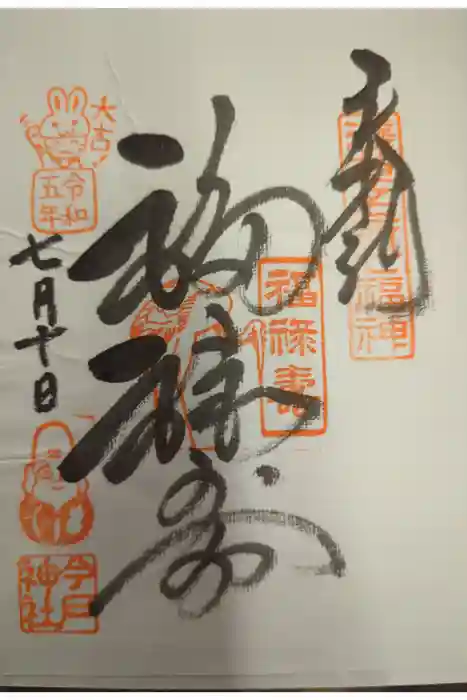 奉拝
福神
福禄寿
福禄壽
大吉
令和
五年
七月十日
今戸
神社